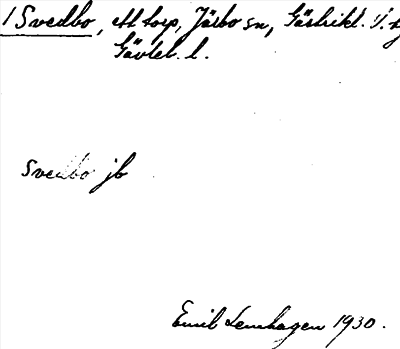 1 Svedbo, ett torp, Järbo sn, Gästrikl. V.
Gävleb. l.
Svedbo jb
Emil Lennhagen 1930.